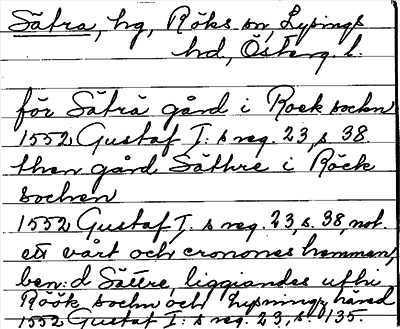 Sätra, hg, Röks sn, Lysings
hd, Österg. l.
för Säträ gård i Roek sochn
1552 Gustaf I: s reg. 23, s. 38.
then gård Säthre i Röck
sochen
1552 Gustaf I. s reg. 23, s. 38, not.
ett vårt och cronones hemman,
ben:d Sättre, liggiandes uthi
Röök sochn och Lysningz häred
1552 Gustaf I: s reg. 23, s. 135.